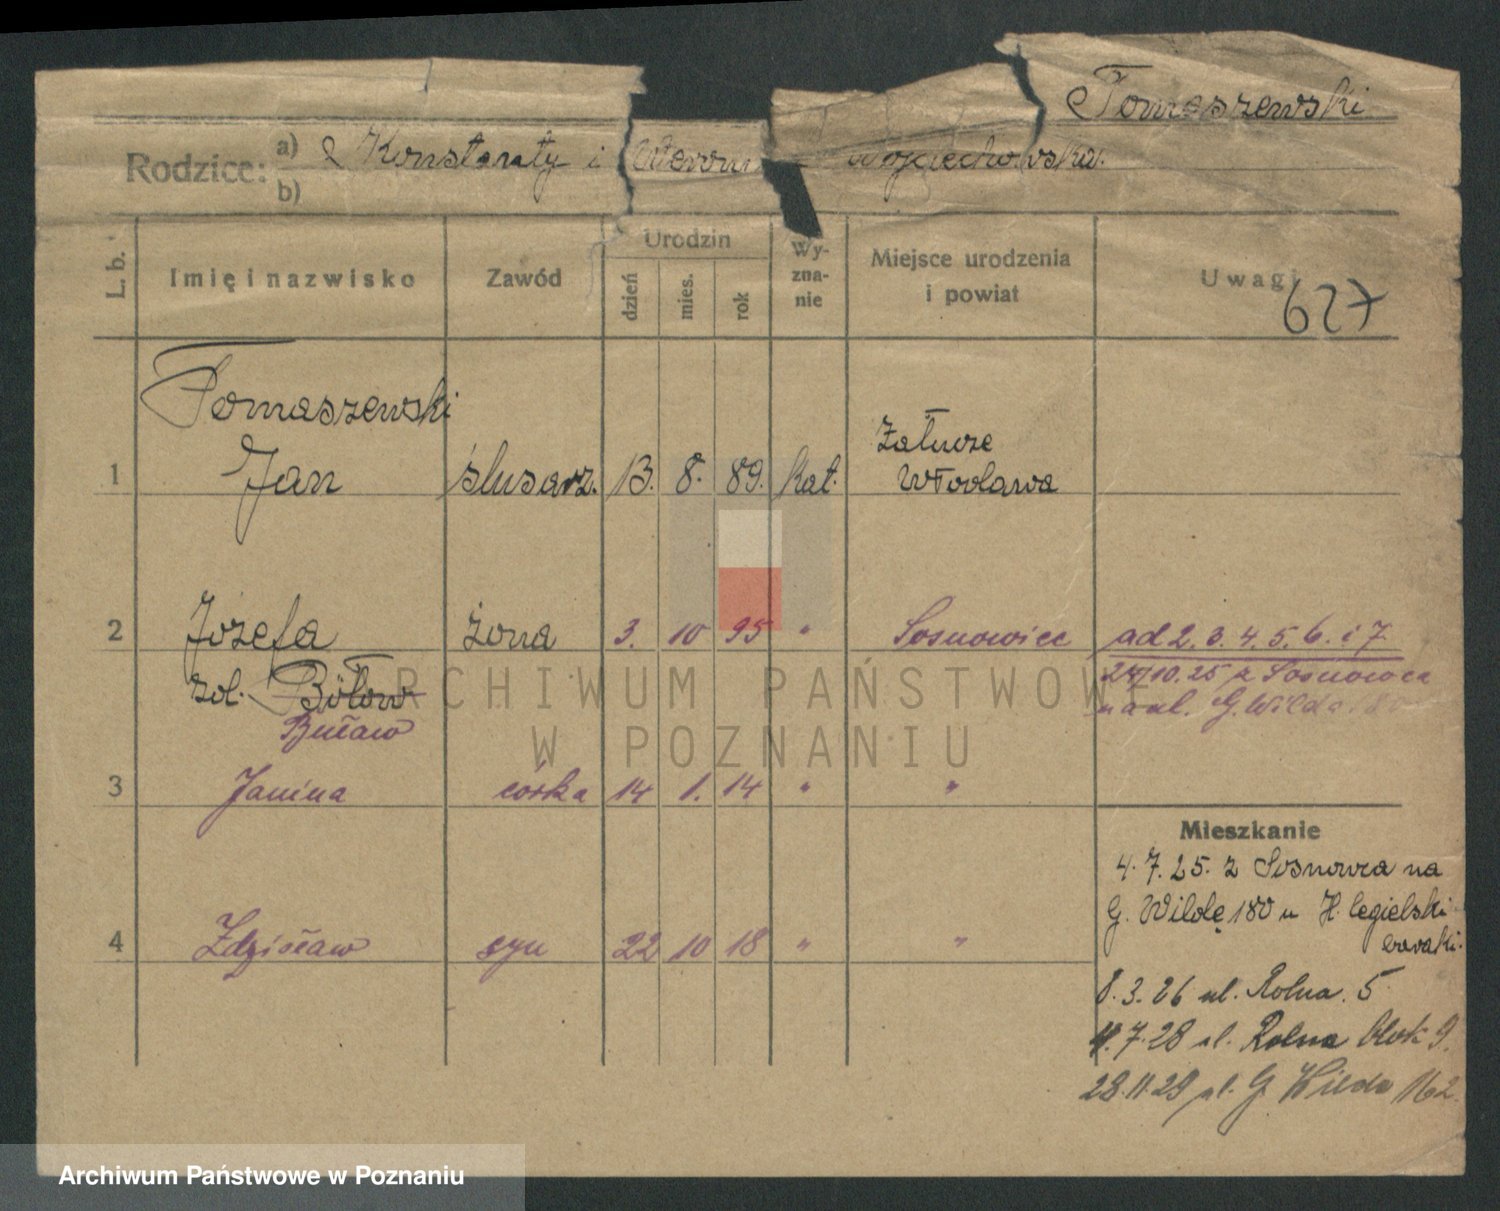 Tomaszewski
Rodzice: a) Konstanty i Weroni Wojciechowska.
b)
L. b. Imię i nazwisko Zawód Urodzin dzień mies. rok Wy-zna-nie Miejsce urodzenia i powiat Uwagi
627
Tomaszewski
1 Jan ślusarz. 13. 8. 89. kat. Załucze
Włodawa
2 Józefa żona 3. 10 95 " Sosnowiec ad 2. 3. 4. 5. 6. i 7
zol. Bółow 24/10.25 z Sosnowca
Buław na ul. G. Wilda 180
3 Janina córka 14 1. 14 " "
Mieszkanie
4. 7. 25. z Sosnowca na
G. Wildę 180 u H. Cegielski
4 Zdzisław syn 22 10 18 " "
8. 3. 26 ul. Rolna. 5
11. 7. 28 ul. Rolna blok 9.
28. 11. 29 ul. G. Wilda 162.
ARCHIWUM PAŃSTWOWE
W POZNANIU
Archiwum Państwowe w Poznaniu